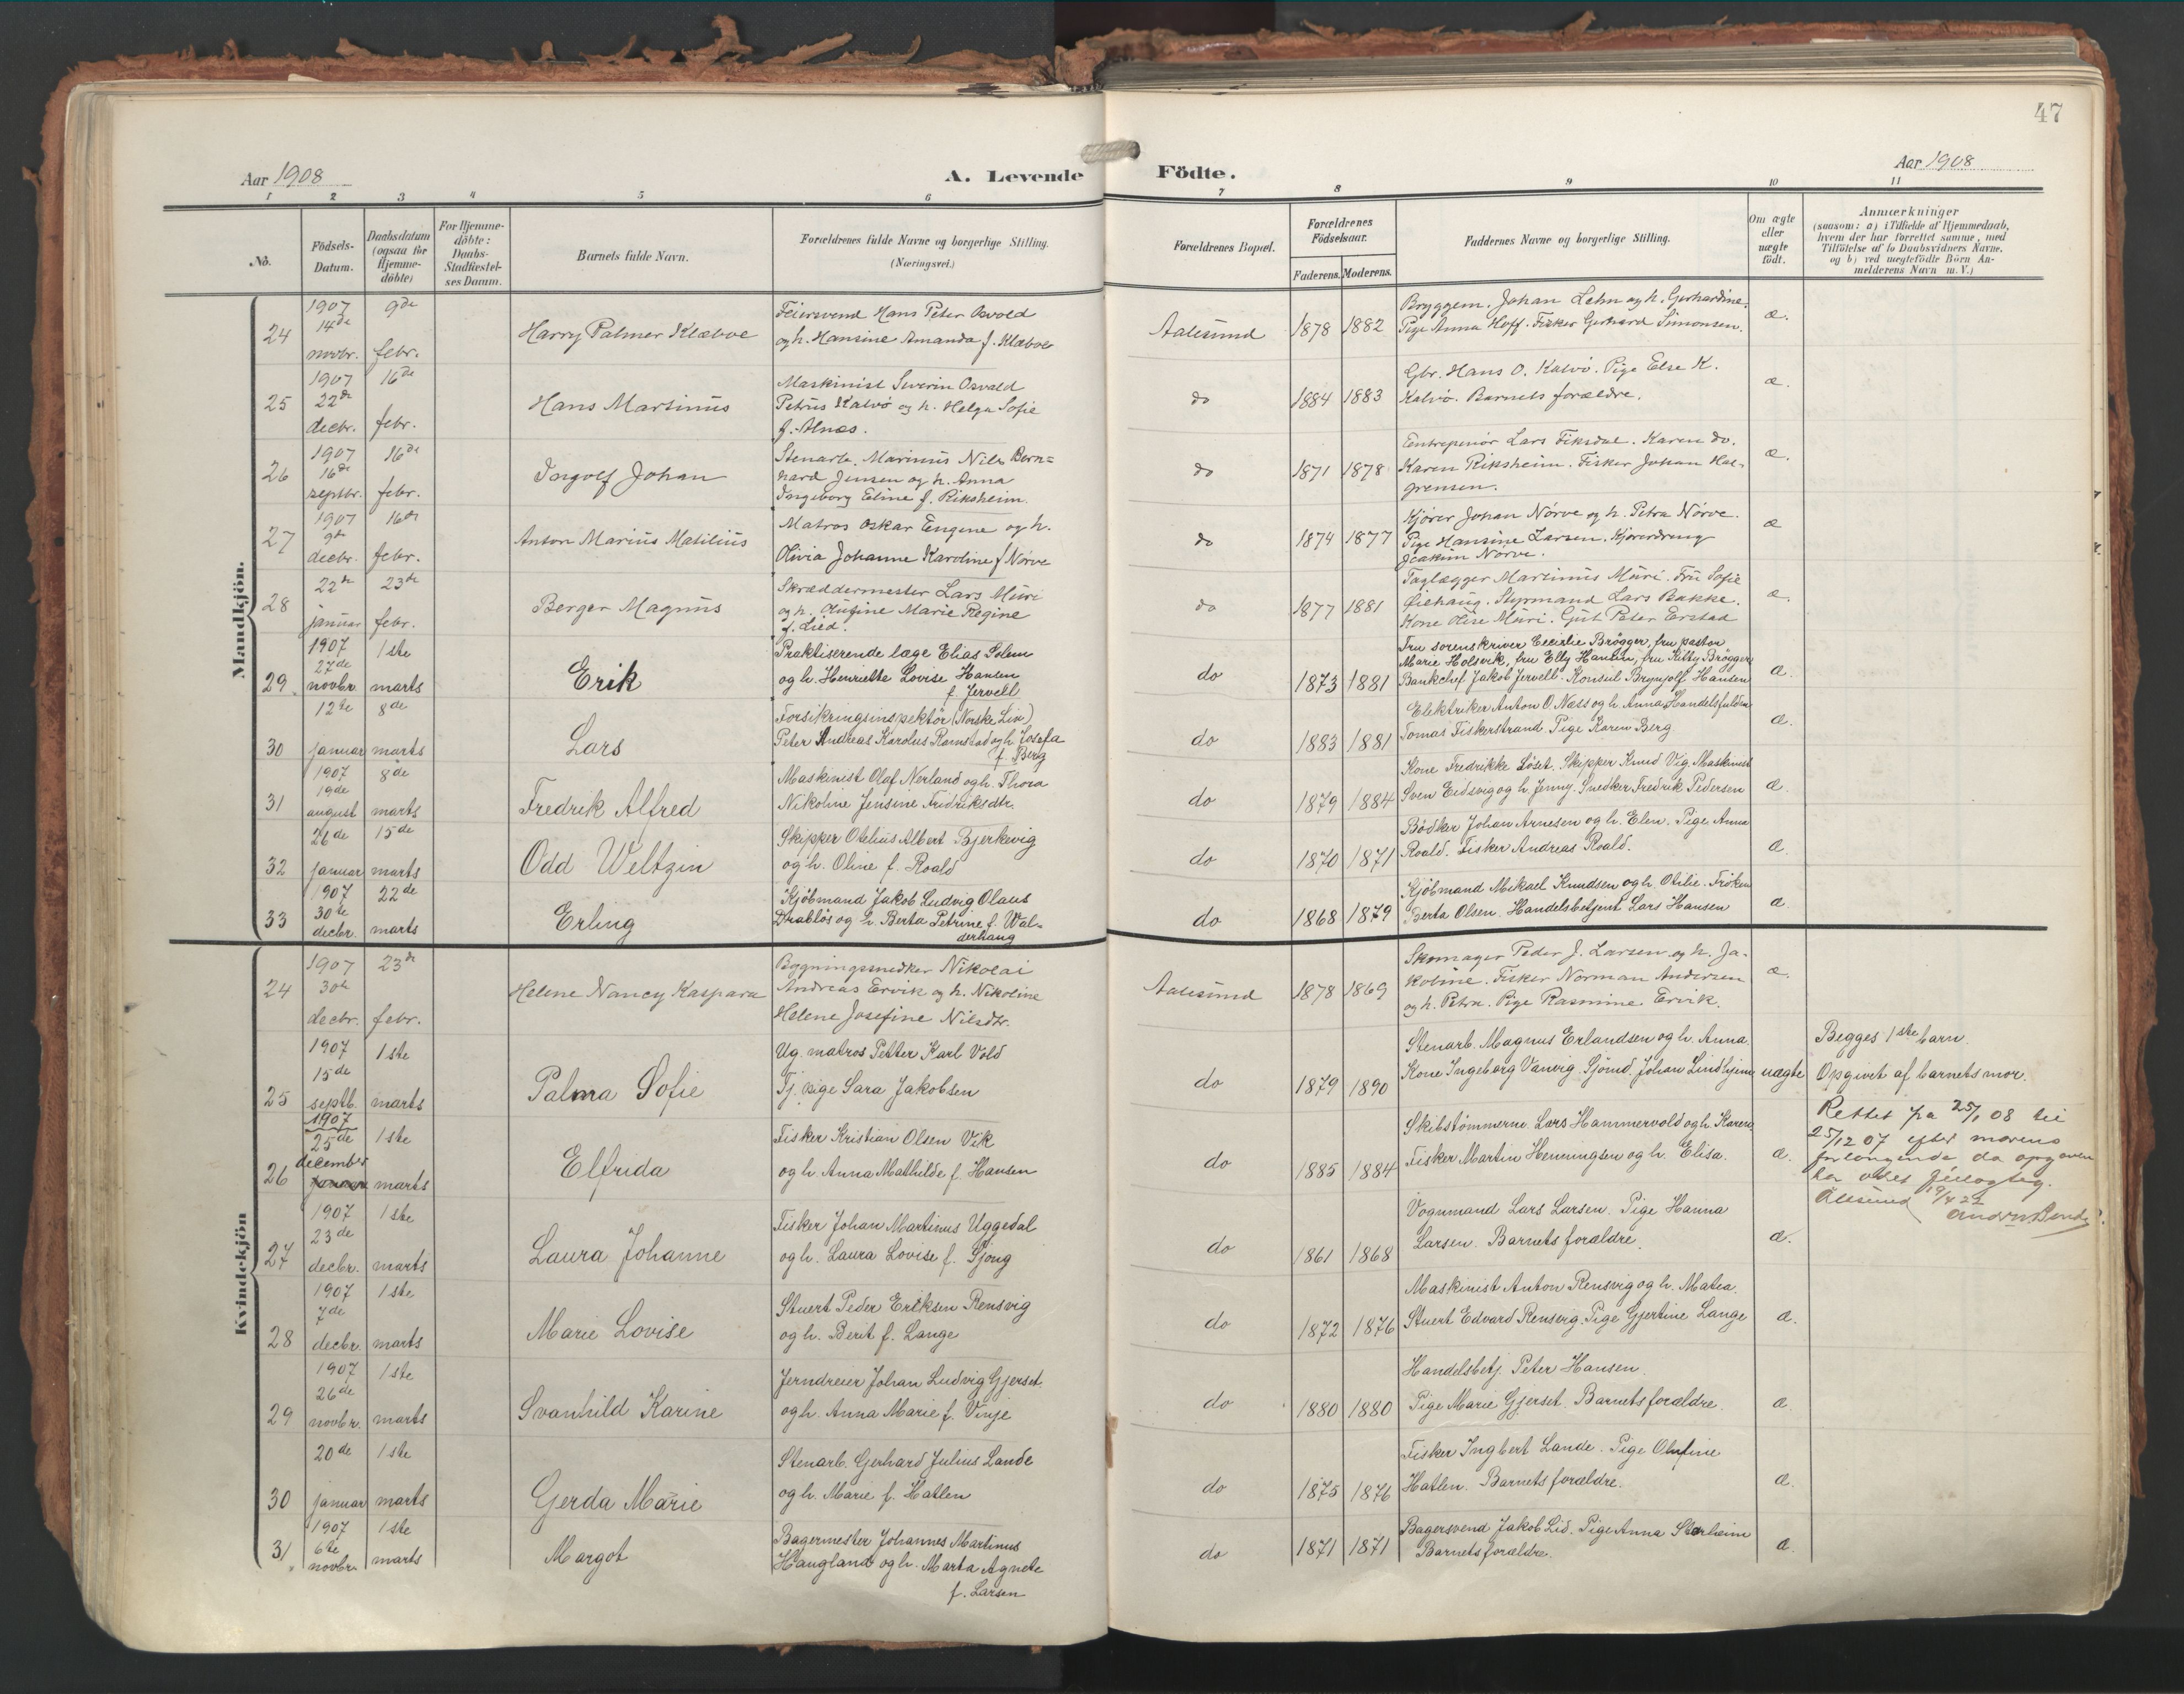 47
Aar 1908
A. Levende Födte.
Aar 1908
1 2 3 4 5 6 7 8 9 10 11
No.
Födsels-Datum.
Daabsdatum (ogsaa för Hjemme-döbte)
For Hjemme-döbte: Daabs-Stadfæstel-ses Datum.
Barnets fulde Navn.
Forældrenes fulde Navne og borgerlige Stilling. (Næringsvei.)
Forældrenes Bopæl.
Forældrenes Födselsaar.
Faderens. Moderens.
Faddernes Navne og borgerlige Stilling.
Om ægte eller uægte födt.
Anmærkninger
(saasom: a) i Tilfælde af Hjemmedaab, hvem der har forrettet samme, med Tilföielse af to Daabsvidners Navne, og b) ved uægtefödte Börn Anmelderens Navn m. V.)
Mandkjön.
24 1907 14de novbr. 9de febr. Harry Palmer Klæboe
Feiersvend Hans Peter Osvold
og h. Hansine Amanda f. Klæboe
Aalesund 1878 1882
Bryggem. Johan Lehn og h. Gerhardine.
Pige Anna Hoff. Fisker Gerhard Simonsen. æ.
25 1907 22de decbr. 16de febr. Hans Martinus
Maskinist Severin Osvald
Petrus Kalvø og h. Helga Sofie
f. Alnæs.
do 1884 1883
Gbr. Hans O. Kalvø. Pige Else K.
Kalvø. Barnets forældre. æ.
26 1907 16de septbr. 16de febr. Ingolf Johan
Stenarb. Marinus Nils Bern=
hard Jensen og h. Anna
Ingeborg Eline f. Riksheim.
do 1871 1878
Entreprenør Lars Fiksdal. Karen do.
Karen Riksheim. Fisker Johan
æ.
27 1907 9de decbr. 16de febr. Anton Marius Matilius
Matros Oskar Eugene og h.
Olivia Johanne Karoline f Nørve
do 1874 1877
Kjører Johan Nørve og h. Petra Nørve.
Pige Hansine Larsen. Kjøredreng
Joakim Nørve. æ
28 22de januar 23de febr. Berger Magnus
Skræddermester Lars Muri
og h. Olufine Marie Regine
f. Lied.
do 1877 1881
Taglægger Martinus Muri. Fru Sofie
Øiehaug. Styrmand Lars Bakke.
Kone Olise Muri. Gut Peter Erstad æ.
29. 1907 27de novbr. 1ste marts Erik
Praktiserende læge Elias Solem
og h. Henriette Lovise Hansen
f. Jervell
do 1873 1881
Fru sorenskriver Cecilie Brøgger, fru pastor
Marie Holsvik, fru Elly Hansen, fru Kitty Brøgger
Bankchef Jakob Jervell. Konsul Brynjolf Hansen æ.
30 12te januar 8de marts Lars
Forsikringsinspektör (Norske Liv)
Peter Andreas Karolus Ramstad og h. Josefa
f. Berg
do 1883 1881
Elektriker Anton O. Næss og h. Anna. Handelsfuldm
Tomas Fiskerstrand. Pige Karen Berg æ.
31 1907 19de august 8de marts Fredrik Alfred
Maskinist Olaf Nerland og h. Thora
Nikoline Jensine Fridriksdtr.
do 1879 1884
Kone Fredrikke Løset. Skipper Knud Vig. Maskinist
Sven Eidsvig og h. Jenny. Snedker Fredrik Pedersen æ.
32 26de januar 15de marts Odd Weltzin
Skipper Otelius Albert Bjerkevig
og h. Oline f. Roald
do 1870 1871
Bødker Johan Arnesen og h. Elen. Pige Anna
Roald. Fisker Andreas Roald. æ.
33 1907 30te decbr. 22de marts Erling
Kjöbmand Jakob Ludvig Olaus
Drabløs og h. Berta Petrine f. Wal=
derhaug
do 1868 1879
Kjøbmand Mikael Knudsen og h. Otilie. Frøken
Berta Olsen. Handelsbetjent Lars Hansen æ.
Kvindekjön
24 1907 30te decbr. 23de febr. Helene Nancy Kaspara
Bygningssnedker Nikolai
Andreas Ervik og h. Nikoline
Helene Josefine Nilsdtr.
Aalesund 1878 1869
Skomager Peder J. Larsen og h. Ja-
kobine. Fisker Norman Andersen
og h. Petra. Pige Rasmine Ervik. æ.
25 1907 15de septb. 1ste marts Palma Sofie
Ug. matros Petter Karl Vold
Tj. pige Sara Jakobsen
do 1879 1890
Stenarb. Magnus Erlandsen og h. Anna.
Kone Ingeborg Vanvig. Sjömd. Johan Lindhjem uægte
Begges 1ste barn.
Opgivet af barnets mor.
26 1907 25de december januar 1ste marts Elfrida
Fisker Kristian Olsen Vik
og h. Anna Mathilde f. Hansen
do 1885 1884
Skibstømmerm. Lars Hammervold og h. Karen
Fisker Martin Henningsen og h. Elisa. æ.
Rettet fra 25/1 08 til
25/12 07 efter morens
forlangende da opgaven
har været feilagtig.
Ålesund 19/4 22
27 1907 23de decbr. 1ste marts Laura Johanne
Fisker Johan Martinus Uggedal
og h. Laura Lovise f. Gjøng
do 1861 1868
Vognmand Lars Larsen. Pige Hanna
Larsen. Barnets forældre. æ.
28 1907 7de decbr. 1ste marts Marie Lovise
Stuert Peder Eriksen Rensvig
og h. Berit f. Lange
do 1872 1876
Maskinist Anton Rensvig og h. Matea.
Stuert Edvard Rensvig. Pige Gjertine Lange æ.
29 1907 26de novbr. 1ste marts Svanhild Karine
Jerndreier Johan Ludvig Gjerset.
og h. Anna Marie f. Vinje
do 1880 1880
Handelsbetj. Peter Hansen.
Pige Marie Gjerset. Barnets forældre. æ.
30 20de januar 1ste marts Gerda Marie
Stenarb. Gerhard Julius Lande
og h. Marie f. Hatlen
do 1875 1876
Fisker Ingbert Lande. Pige Olufine
Hatlen. Barnets forældre. æ.
31 1907 6te novbr. 1ste marts Margot
Bagermester Johannes Martinus
Haugland og h. Marta Agnete
f. Larsen
do 1871 1871
Bagersvend Jakob Lid. Pige Anna Storheim
Barnets forældre. æ.